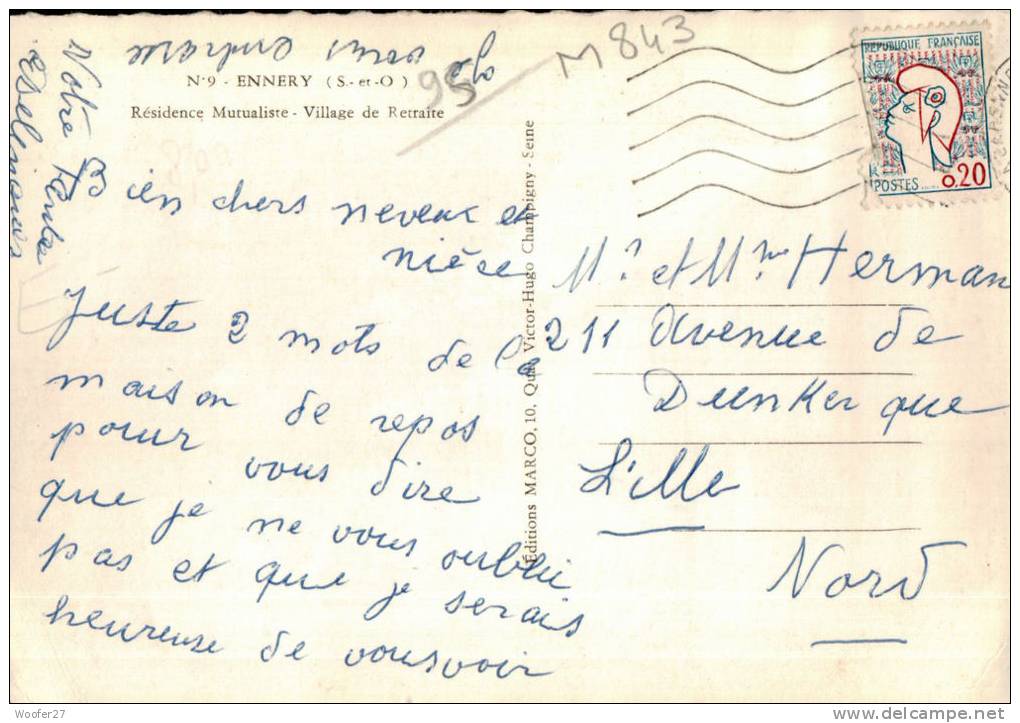 N°9 - ENNERY (S.-et-O)
Résidence Mutualiste - Village de Retraite
Bien chers neveux et
nièce
Juste 2 mots de la
maison de repos
pour vous dire
que je ne vous oublie
pas et que je serais
heureuse de vous voir
je vous embrasse
Notre tante
95
M 843
Éditions MARCO, 10, Quai Victor-Hugo Champigny - Seine
REPUBLIQUE FRANÇAISE
POSTES
0,20
Mr et Mme Herman
211 Avenue de
Dunkerque
Lille
Nord
Woofer27
www.delcampe.net